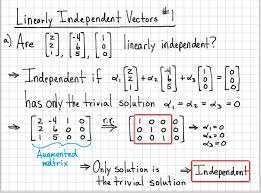 Linearly Independent Vectors #1
a) Are [2 2 1], [-4 6 5], [1 0 0] linearly independent?
⇒ Independent if α₁ [2 2 1] + α₂ [-4 6 5] + α₃ [1 0 0] = [0 0 0]
has only the trivial solution α₁ = α₂ = α₃ = 0
⇒ [2 -4 1 0; 2 6 0 0; 1 5 0 0] r.r. → [1 0 0 0; 0 1 0 0; 0 0 1 0] ⇒ α₁ = 0 α₂ = 0 α₃ = 0
Augmented matrix
⇒ Only solution is the trivial solution ⇒ Independent